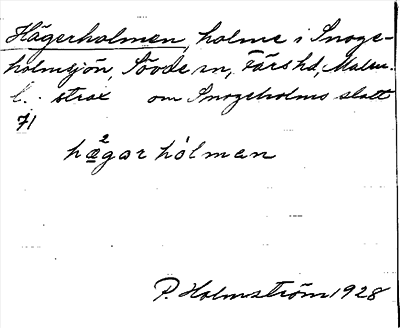 Hägerholmen, holme i Snoge-
holmsjön, Sövde sn, Färs hd, Malm.
l. strax om Snogeholms slott
71
hägər hólmən
P. Holmström 1928